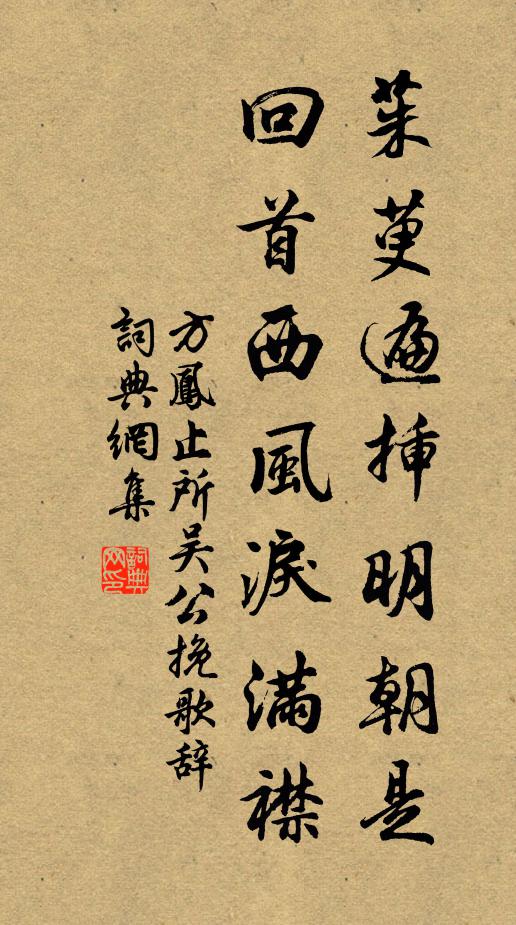 茱萸遍插明朝是
回首西風淚滿襟
方鳳止所吳公挽歌辭
詞典網集
詞典網印